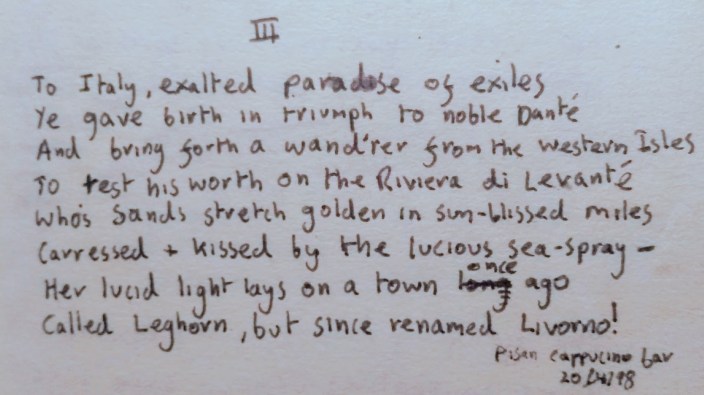 III
To Italy, exalted paradise of exiles
Ye gave birth in triumph to noble Danté
And bring forth a wand'rer from the western Isles
To test his worth on the Riviera di Levanté
Who's sands stretch golden in sun-blissed miles
Carressed + kissed by the lucious sea-spray -
Her lucid light lays on a town long once ago
Called Leghorn, but since renamed Livorno!
Pisan cappucino bar
20/4/98